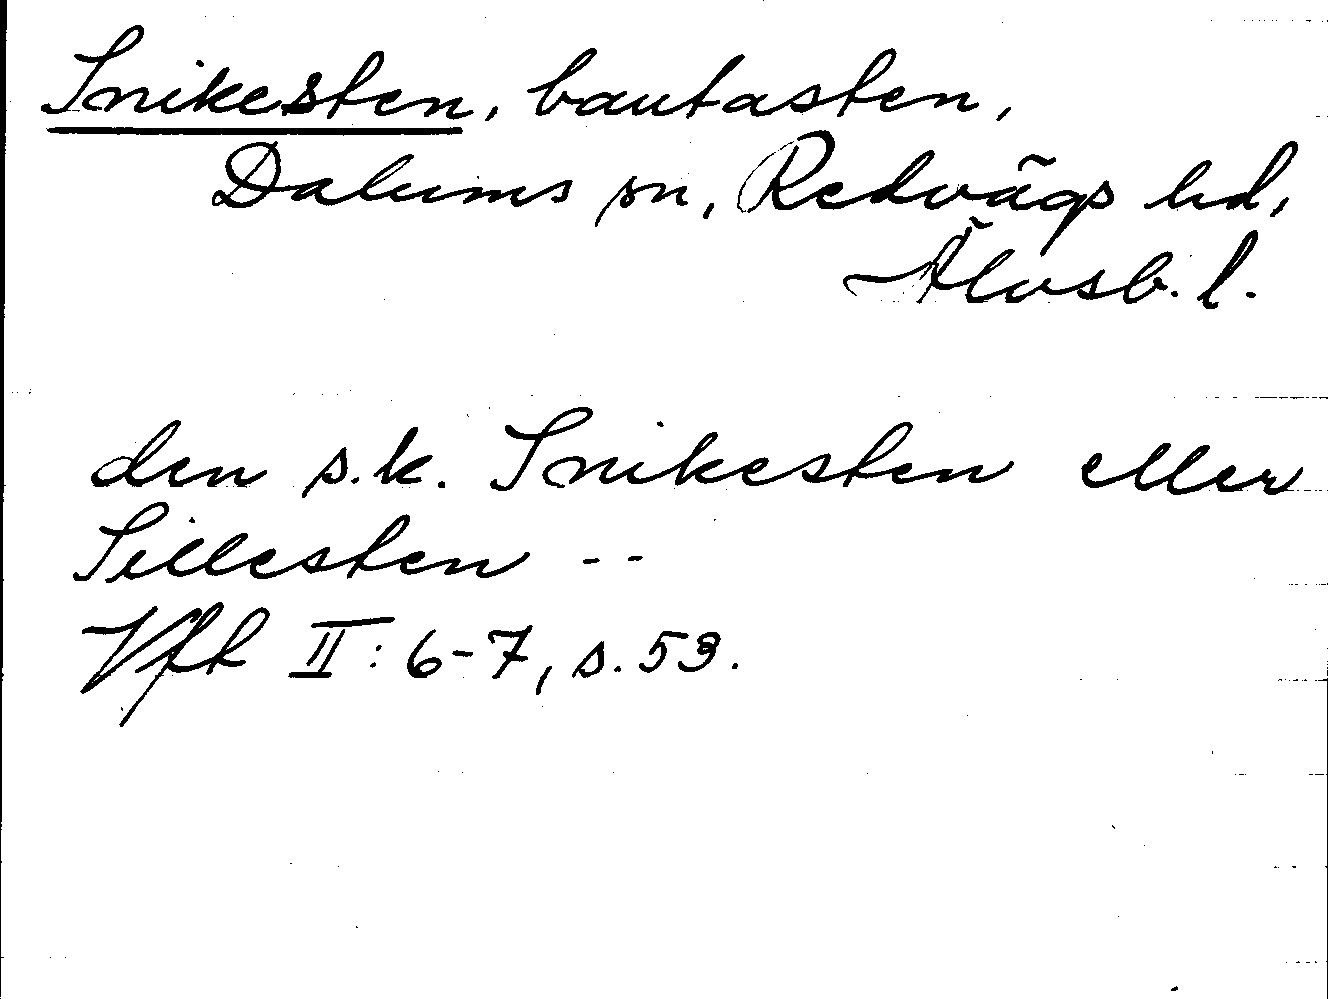 Snikesten, bautasten,
Dalums sn, Redvägs hd,
Älvsb. l.
den s.k. Snikesten eller
Sillesten --
Vft II: 6-7, s. 53.